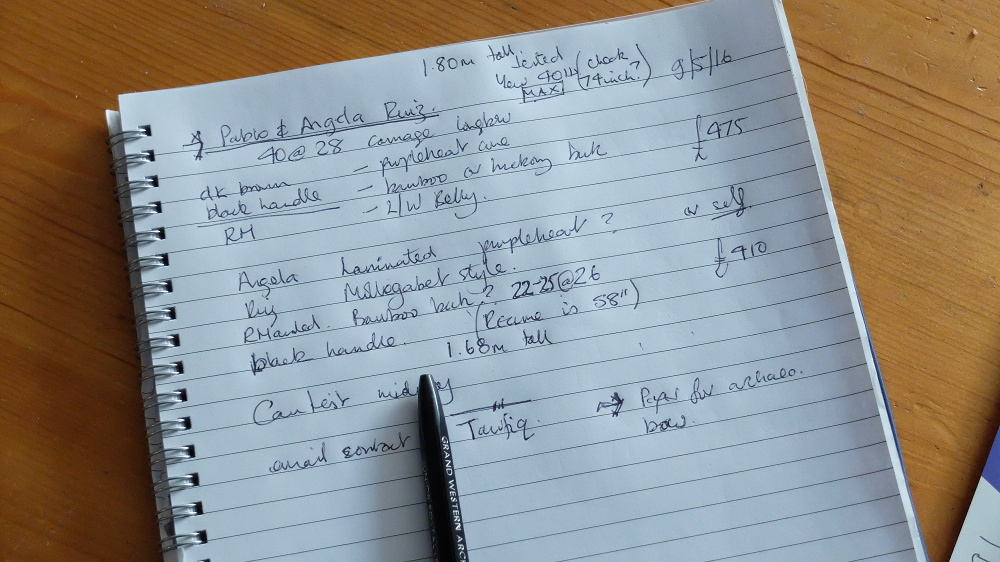 1.80m tall. Tested
Yew 40lb (check
MAX 74 inch?)
9/5/16
Pablo & Angela Ruiz.
40@28 carriage longbow
£475
dk brown — purpleheart core
black handle — bamboo or hickory back
RH — L/W Belly.
or self
Angela Laminated purpleheart?
Ruiz Mollegabet style.
£410
RHanded. Bamboo back? 22-25@26
black handle. (Recurve is 58")
1.68m tall
Can test
email contact Tawfiq.
⇒ Paper for archaeo.
bow.
GRAND WESTERN ARC